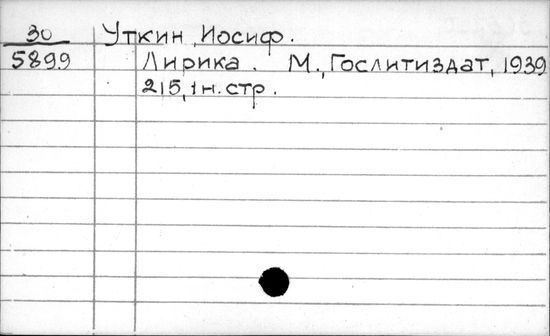 30 Уткин, Иосиф.
5899 Лирика. М., Гослитиздат, 1939
215, 1 н. стр.